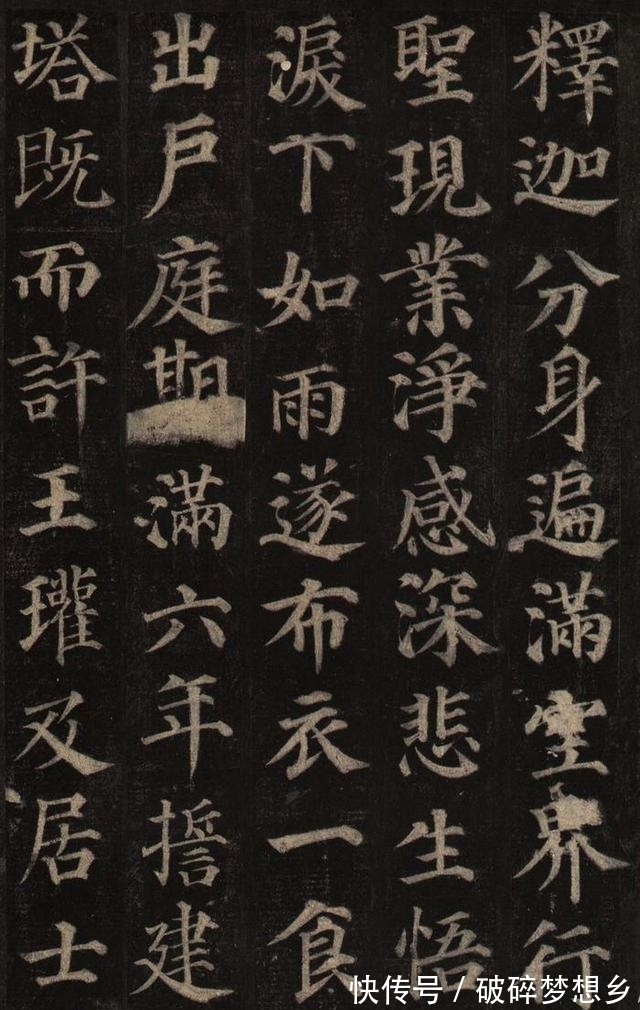 釋迦分身遍滿空界行
聖現業淨感深悲生悟
淚下如雨遂布衣一食
出戶庭期滿六年擔建
塔既而許王瓘及居士
快传号 / 破碎梦想乡